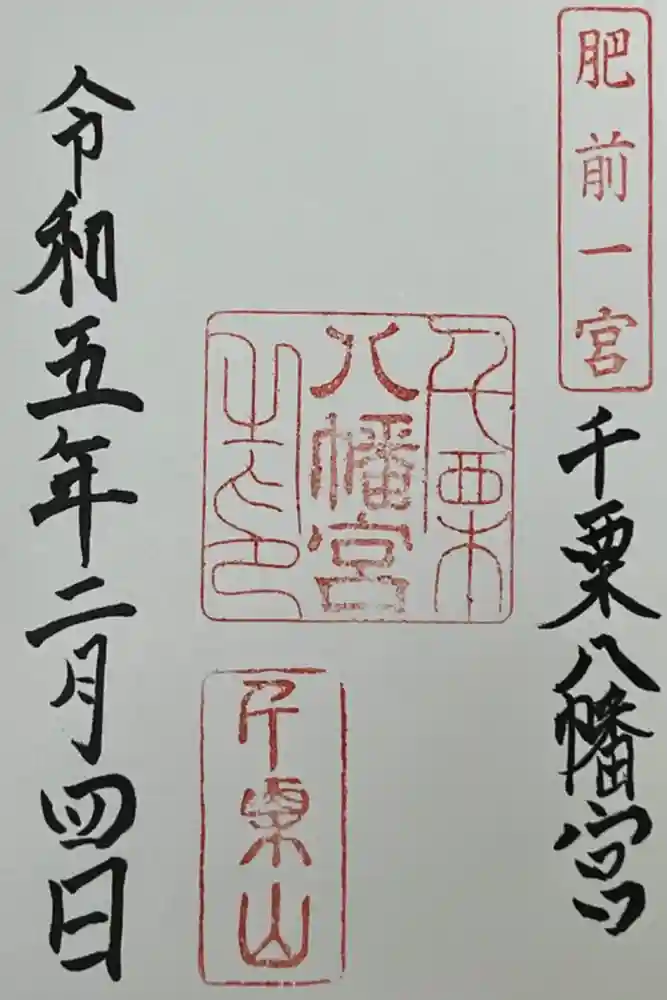 肥前一宮
千栗八幡宮
千栗
八幡宮
之印
千栗山
令和五年二月四日